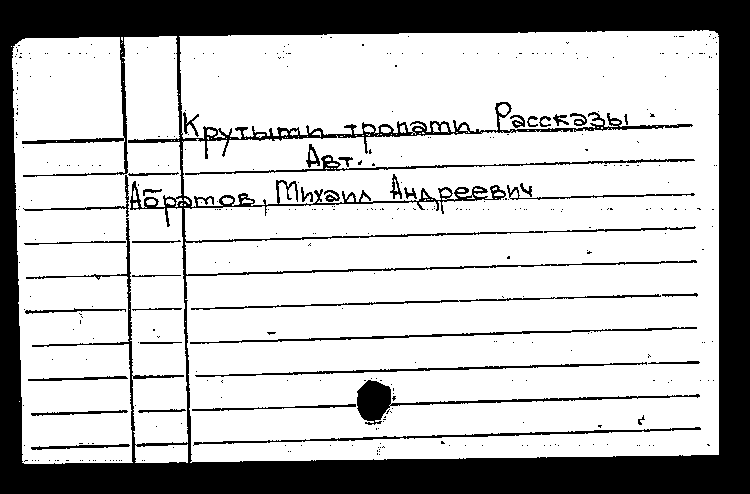 Крутыми тропами. Рассказы.
Авт.:
Абрамов, Михаил Андреевич